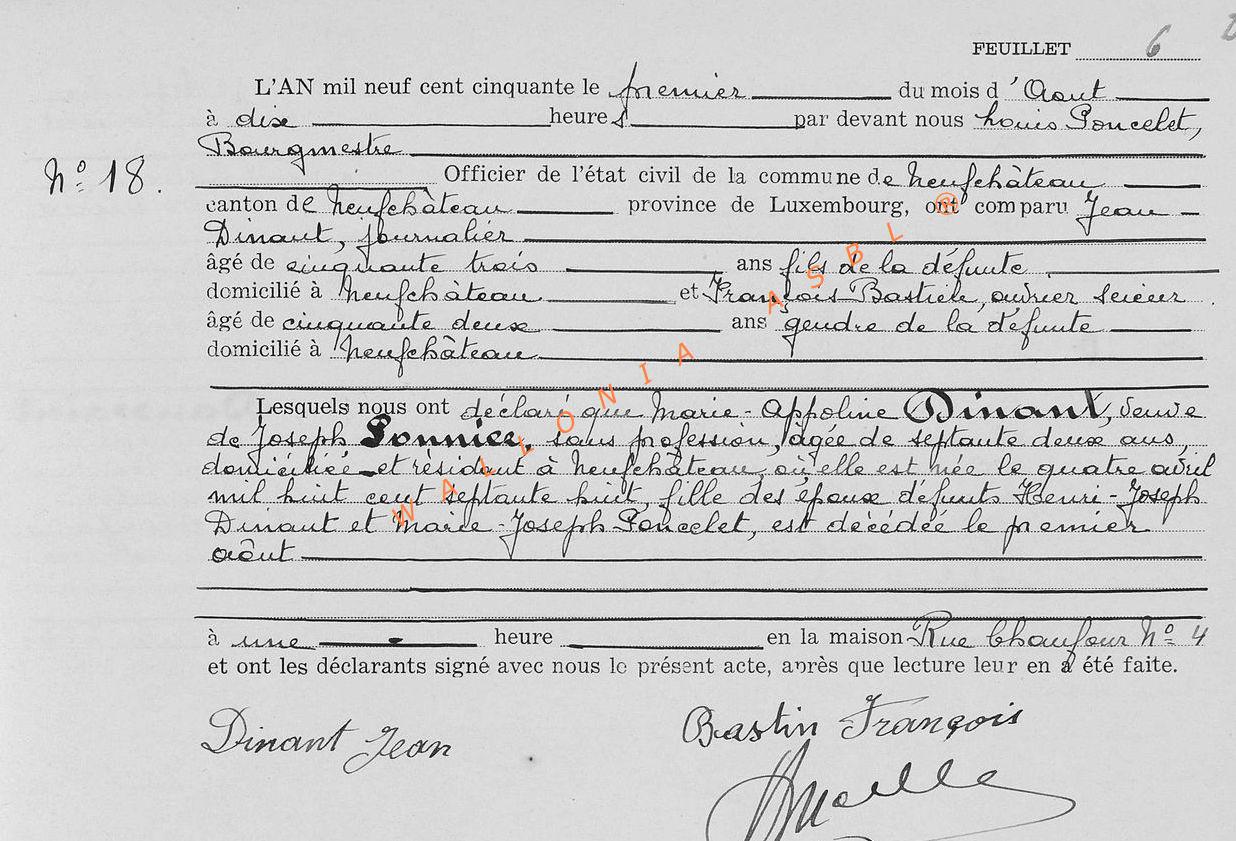 FEUILLET 6
L'AN mil neuf cent cinquante le premier du mois d'Août
à dix heures par devant nous Louis Poncelet,
Bourgmestre
N° 18.
Officier de l'état civil de la commune de Neufchâteau
canton de Neufchâteau province de Luxembourg, ont comparu Jean
Dinant, journalier
âgé de cinquante trois ans fils de la défunte
domicilié à Neufchâteau et François Bastin, ouvrier scieur
âgé de cinquante deux ans gendre de la défunte
domicilié à Neufchâteau
Lesquels nous ont déclaré que Marie-Appoline Dinant, veuve
de Joseph Ponnice, sans profession, âgée de septante deux ans
domiciliée et résidant à Neufchâteau, où elle est née le quatre avril
mil huit cent septante huit, fille des époux défunts Henri-Joseph
Dinant et Marie-Joseph Poncelet, est décédée le premier
août
à une heure en la maison Rue Chaufour N° 4
et ont les déclarants signé avec nous le présent acte, après que lecture leur en a été faite.
Dinant Jean Bastin François
WALLONIA ASBL ®